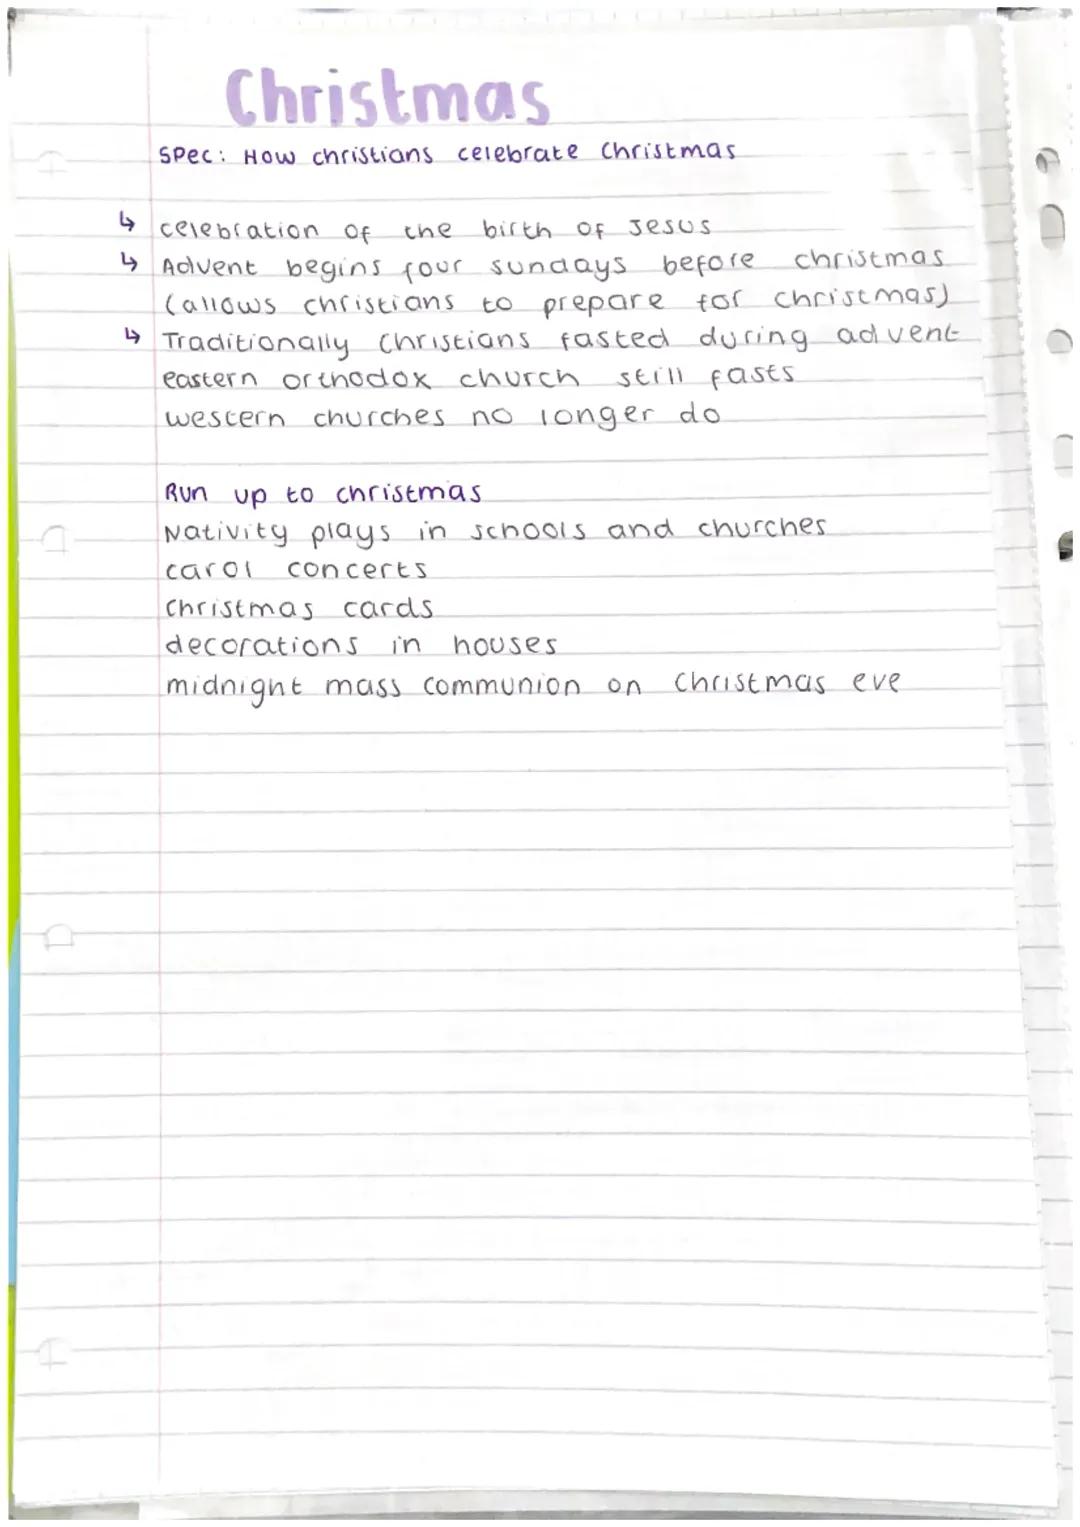 Christmas
Spec: How christians celebrate Christmas
↳ celebration of the birth of Jesus
↳ Advent begins four sundays before christmas
(allows christians to prepare for christmas)
↳ Traditionally Christians fasted during advent
eastern orthodox church still fasts
western churches no longer do
Run up to christmas
Nativity plays in schools and churches
carol concerts
Christmas cards
decorations in houses
midnight mass communion on Christmas eve